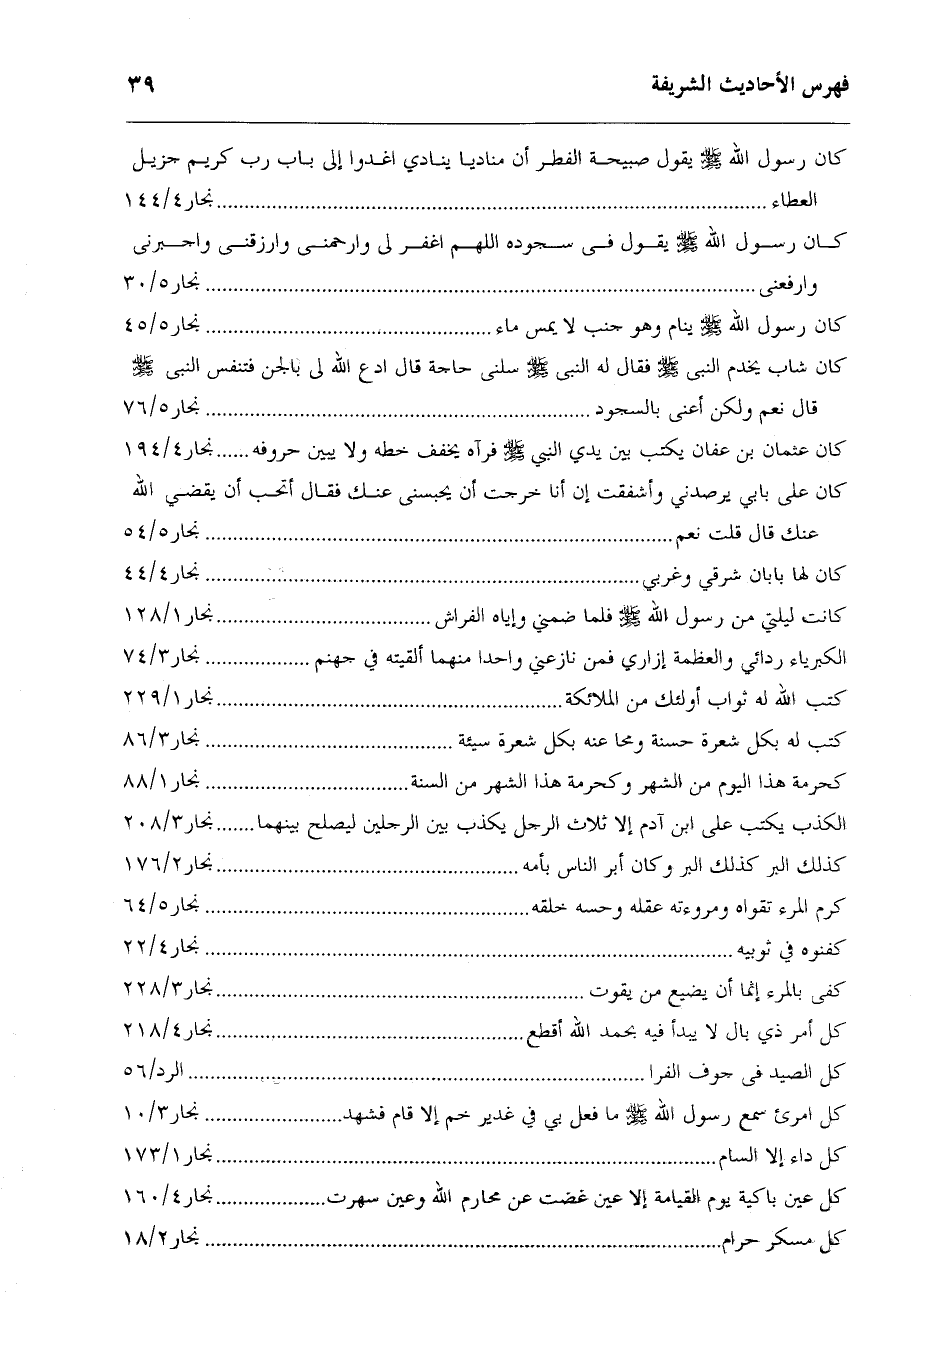 فهرس الأحاديث الشريفة ٣٩
كان رسول الله ﷺ يقول صبيحة الفطر أن مناديا ينادي اغدوا إلى باب رب كريم جزيل
العطاء ........ نجار١٤٤/٤
كان رسول الله ﷺ يقول فى سجوده اللهم اغفر لى وارحمنى وارزقنى واجبرنى
وارفعنى ........ نجار٣٠/٥
كان رسول الله ﷺ ينام وهو جنب لا يمس ماء ........ نجار٤٥/٥
كان شاب يخدم النبى ﷺ فقال له النبى ﷺ سلنى حاجة قال ادع الله لى بالجن فتنفس النبى ﷺ
قال نعم ولكن أعنى بالسجود ........ نجار٧٦/٥
كان عثمان بن عفان يكتب بين يدي النبي ﷺ فرآه يخفف خطه ولا يبين حروفه ...... نجار١٩٤/٤
كان على بابي يرصدني وأشفقت إن أنا خرجت أن يحبسنى عنك فقال أتحب أن يقضي الله
عنك قال قلت نعم ........ نجار٥٤/٥
كان لها بابان شرقي وغربي ........ نجار٤٤/٤
كانت ليلتي من رسول الله ﷺ فلما ضمني وإياه الفراش ........ نجار١٢٨/١
الكبرياء ردائي والعظمة إزاري فمن نازعني واحدا منهما ألقيته في جهنم ........ نجار٧٤/٣
كتب الله له ثواب أولئك من الملائكة ........ نجار٢٢٩/١
كتب له بكل شعرة حسنة ومحا عنه بكل شعرة سيئة ........ نجار٨٦/٣
كحرمة هذا اليوم من الشهر وكحرمة هذا الشهر من السنة ........ نجار٨٨/١
الكذب يكتب على ابن آدم إلا ثلاث الرجل يكذب بين الرجلين ليصلح بينهما ....... نجار٢٠٨/٣
كذلك البر كذلك البر وكان أبر الناس بأمه ........ نجار١٧٦/٢
كرم المرء تقواه ومروءته عقله وحسه خلقه ........ نجار٦٤/٥
كفنوه في ثوبيه ........ نجار٢٢/٤
كفى بالمرء إثما أن يضيع من يقوت ........ نجار٢٢٨/٣
كل أمر ذي بال لا يبدأ فيه بحمد الله أقطع ........ نجار٢١٨/٤
كل الصيد فى جوف الفرا ........ الرد/٥٦
كل امرئ سمع رسول الله ﷺ ما فعل بي في غدير خم إلا قام فشهد ........ نجار١٠/٣
كل داء إلا السام ........ نجار١٧٣/١
كل عين باكية يوم القيامة إلا عين غضت عن محارم الله وعين سهرت ........ نجار١٦٠/٤
كل مسكر حرام ........ نجار١٨/٢